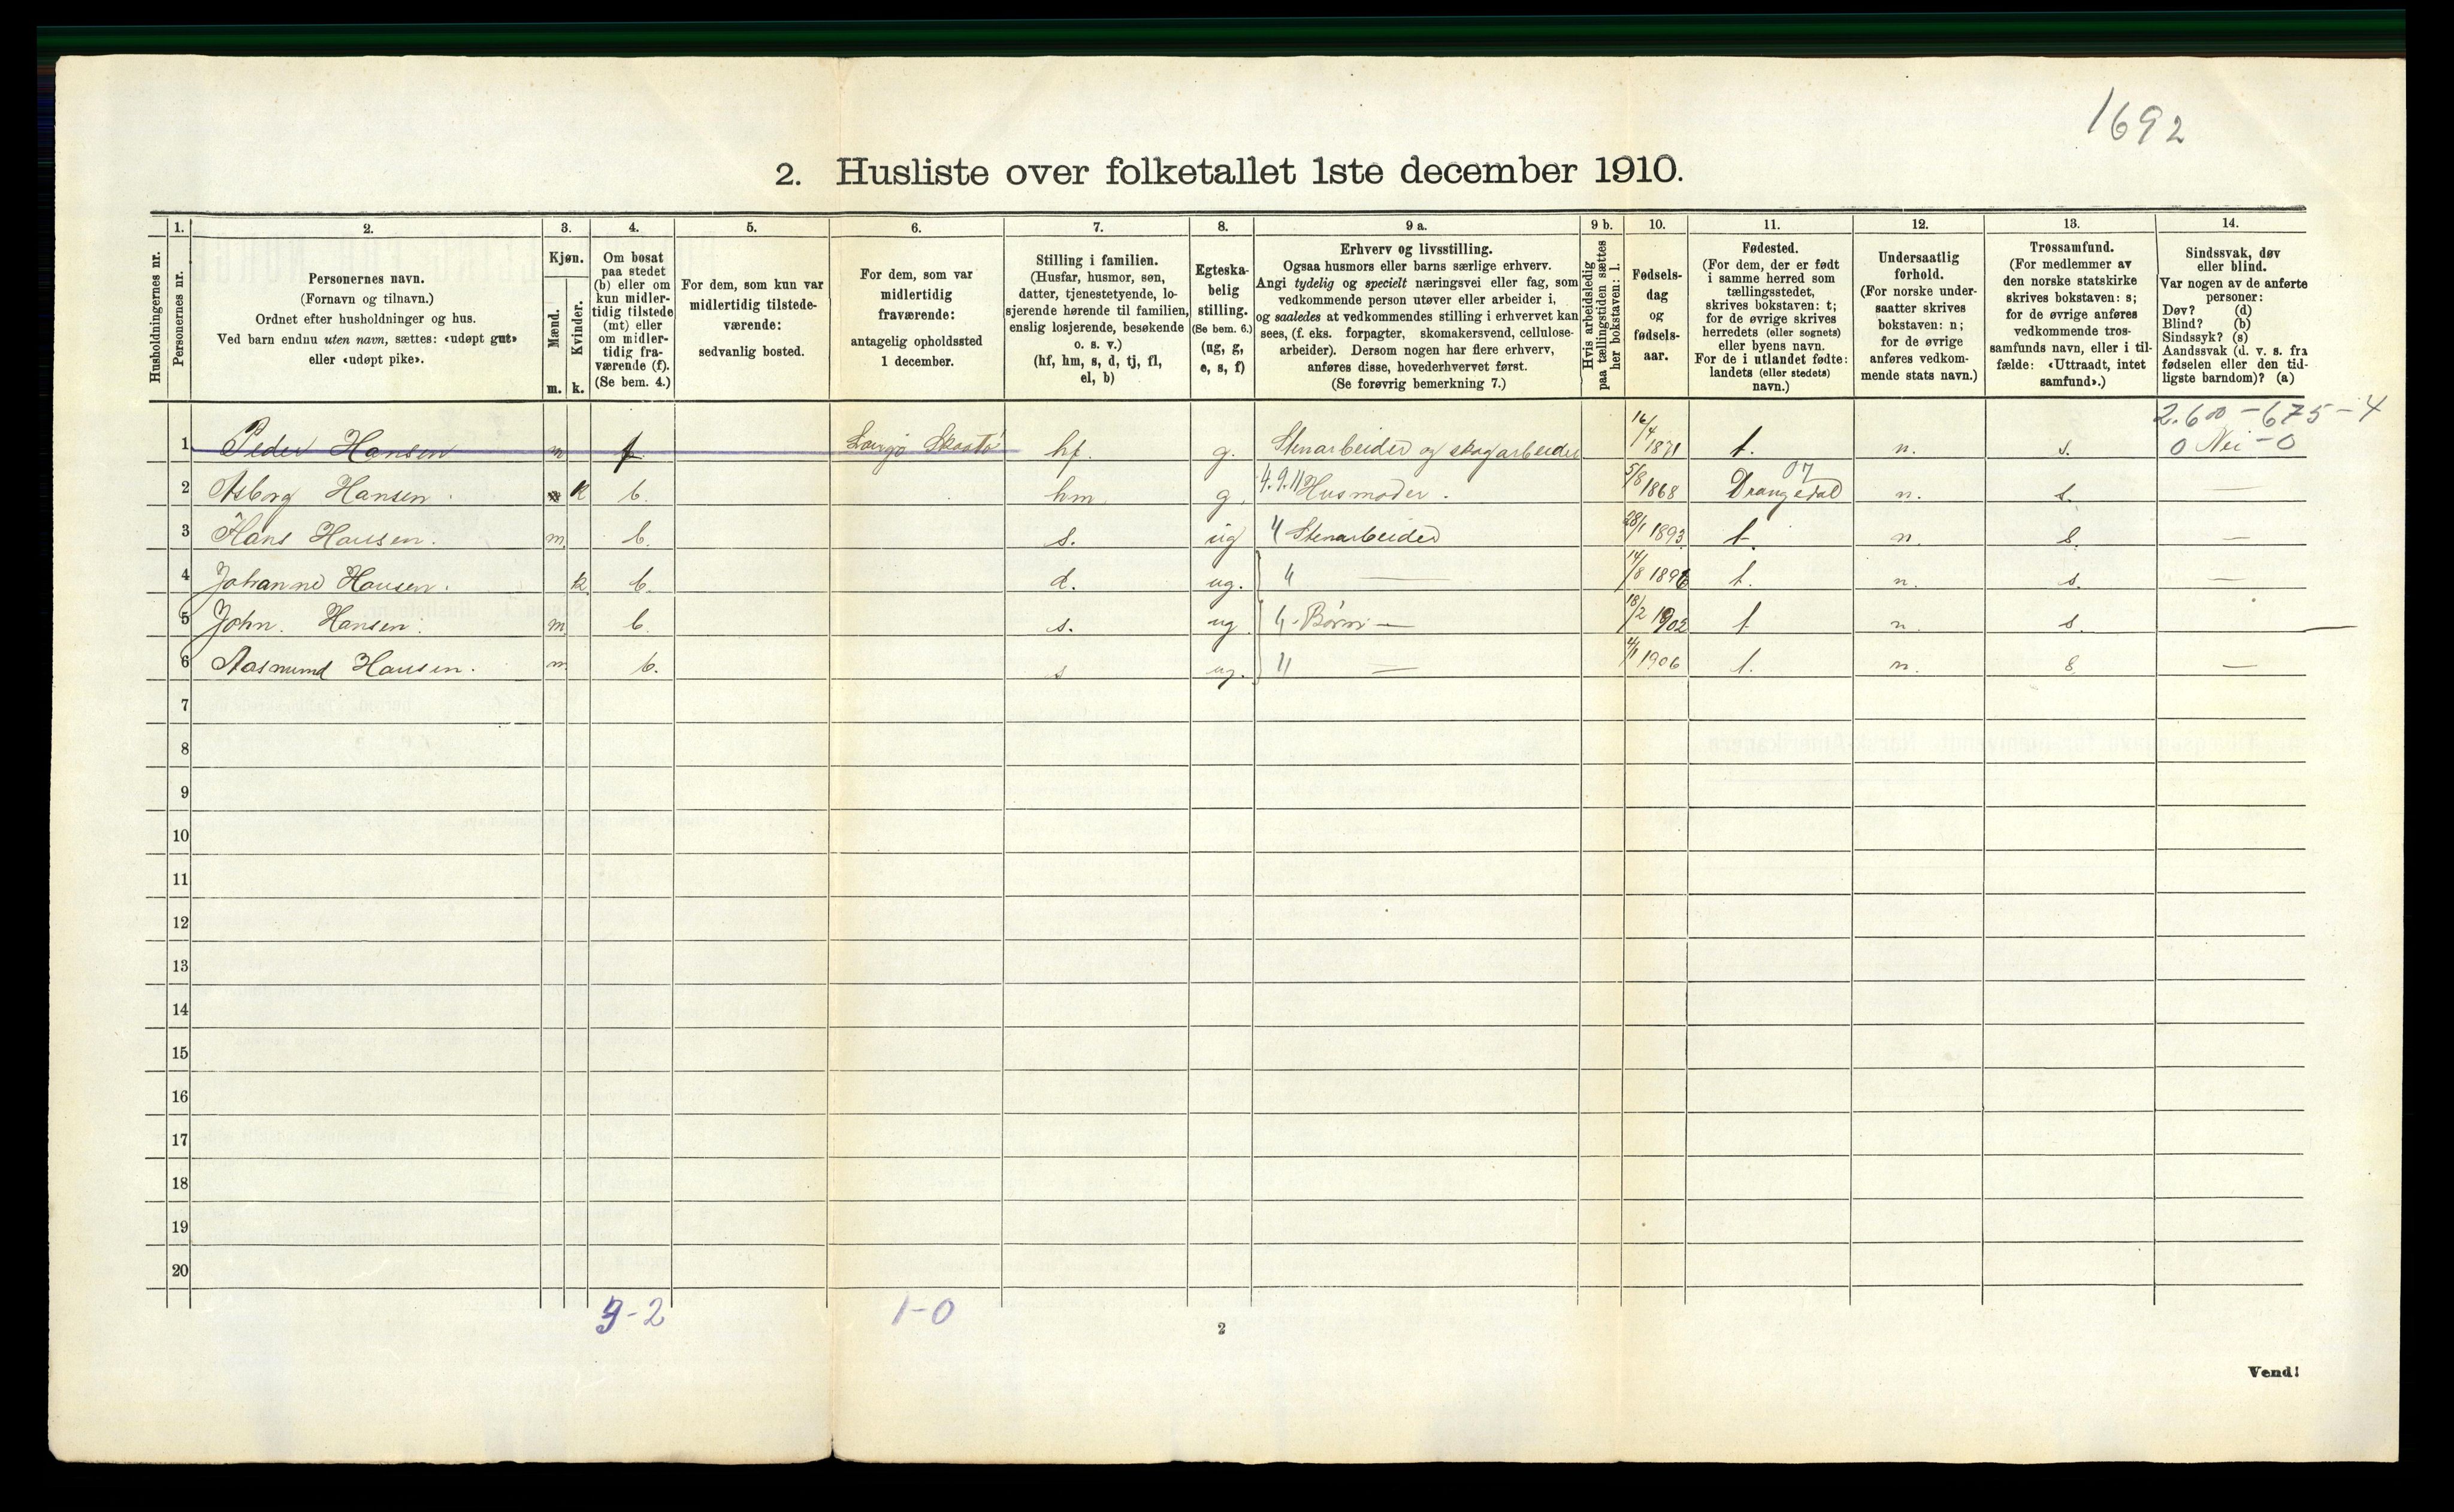 1692
2. Husliste over folketallet 1ste december 1910.
Husholdningernes nr.
1.
Personernes nr.
2.
Personernes navn.
(Fornavn og tilnavn.)
Ordnet efter husholdninger og hus.
Ved barn endnu uten navn, sættes: «udøpt gut»
eller «udøpt pike».
3.
Kjøn.
Mænd.
Kvinder.
m. k.
4.
Om bosat
paa stedet
(b) eller om
kun midler-
tidig tilstede
(mt) eller
om midler-
tidig fra-
værende (f).
(Se bem. 4.)
5.
For dem, som kun var
midlertidig tilstede-
værende:
sedvanlig bosted.
6.
For dem, som var
midlertidig
fraværende:
antagelig opholdssted
1 december.
7.
Stilling i familien.
(Husfar, husmor, søn,
datter, tjenestetyende, lo-
sjerende hørende til familien,
enslig losjerende, besøkende
o. s. v.)
(hf, hm, s, d, tj, fl,
el, b)
8.
Egteska-
belig
stilling.
(Se bem. 6.)
(ug, g,
e, s, f)
9 a.
Erhverv og livsstilling.
Ogsaa husmors eller barns særlige erhverv.
Angi tydelig og specielt næringsvei eller fag, som
vedkommende person utøver eller arbeider i,
og saaledes at vedkommendes stilling i erhvervet kan
sees, (f. eks. forpagter, skomakersvend, cellulose-
arbeider). Dersom nogen har flere erhverv,
anføres disse, hovederhvervet først.
(Se forøvrig bemerkning 7.)
9 b.
Hvis arbeidsledig
paa tællingstiden sættes
her bokstaven: l.
10.
Fødsels-
dag
og
fødsels-
aar.
11.
Fødested.
(For dem, der er født
i samme herred som
tællingsstedet,
skrives bokstaven: t;
for de øvrige skrives
herredets (eller sognets)
eller byens navn.
For de i utlandet fødte:
landets (eller stedets)
navn.)
12.
Undersaatlig
forhold.
(For norske under-
saatter skrives
bokstaven: n;
for de øvrige
anføres vedkom-
mende stats navn.)
13.
Trossamfund.
(For medlemmer av
den norske statskirke
skrives bokstaven: s;
for de øvrige anføres
vedkommende tros-
samfunds navn, eller i til-
fælde: «Uttraadt, intet
samfund».)
14.
Sindssvak, døv
eller blind.
Var nogen av de anførte
personer:
Døv? (d)
Blind? (b)
Sindssyk? (s)
Aandssvak (d. v. s. fra
fødselen eller den tid-
ligste barndom)? (a)
2.600 - 675 - 4
1 Peder Hansen m f Langø Skaatø hf. g. Stenarbeider og skogarbeider 16/4 1871 t. n. s. 0 Nei - 0
07
2 Asborg Hansen. k b. hm g. 4.9.11 Husmoder. 5/8 1868 Drangedal n. s. —
3 Hans Hansen. m b. s. ug " Stenarbeider 28/1 1893 t. n. s. —
4 Johanne Hansen. k b. d. ug. " — 14/8 1896 t. n. s. —
5 John. Hansen. m b. s. ug " Børn — 18/2 1902 t n s. —
6 Aasmund Hansen. m b. s ug. " — 4/1 1906 t. n. s —
7
8
9
10
11
12
13
14
15
16
17
18
19
20
3-2 1-0
2
Vend!